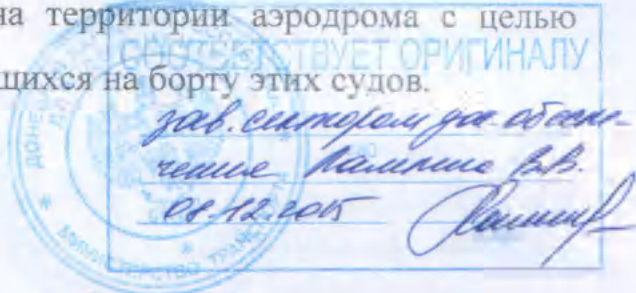 на территории аэродрома с целью
щихся на борту этих судов.
СООТВЕТСТВУЕТ ОРИГИНАЛУ
зав. сектором док. обеспе-
чения
В.В.
08.12.2015
МИНИСТЕРСТВО ТРАНСПОРТА